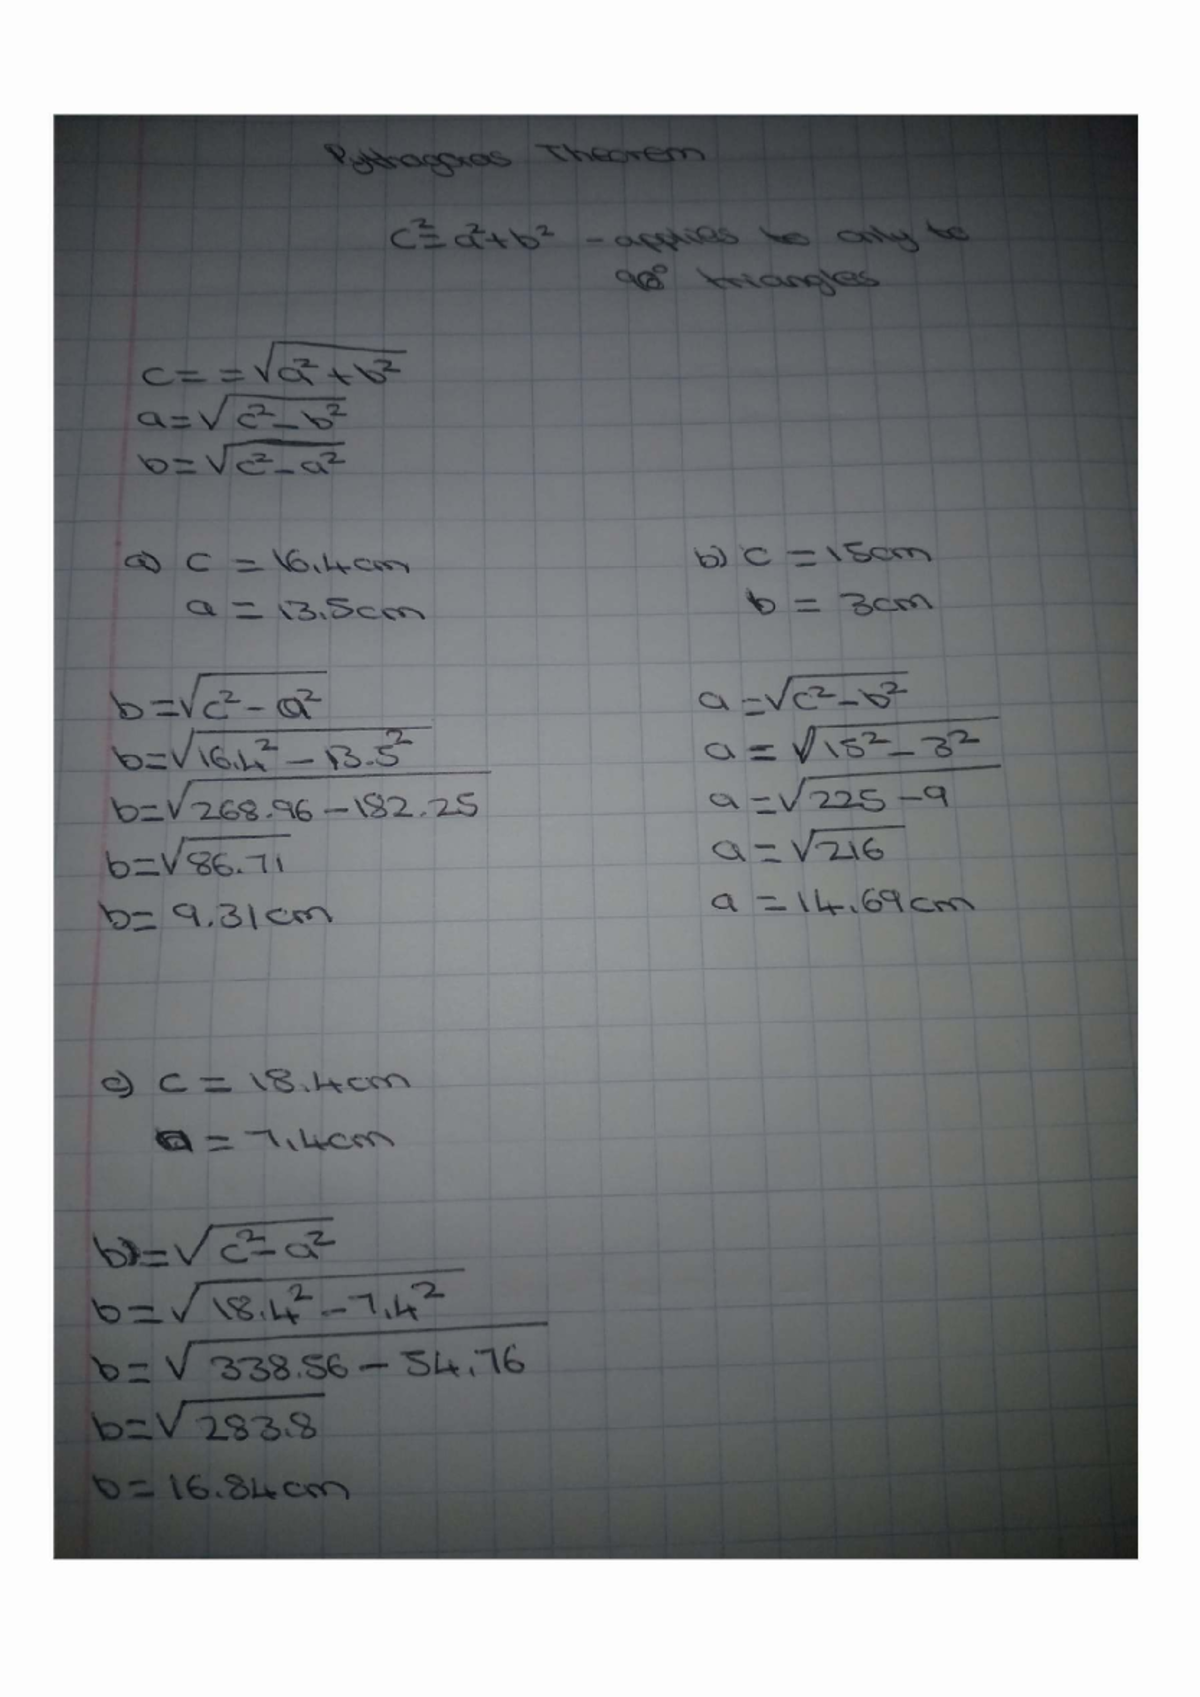 Pythagoras Theorem
c² = a² + b² - applies to only to
90° triangles
c = = √a² + b²
a = √c² - b²
b = √c² - a²
a) c = 16.4cm
a = 13.5cm
b = √c² - a²
b = √16.4² - 13.5²
b = √268.96 - 182.25
b = √86.71
b = 9.31cm
b) c = 15cm
b = 3cm
a = √c² - b²
a = √15² - 3²
a = √225 - 9
a = √216
a = 14.69cm
c) c = 18.4cm
a = 7.4cm
b) = √c² - a²
b = √18.4² - 7.4²
b = √338.56 - 54.76
b = √283.8
b = 16.84cm